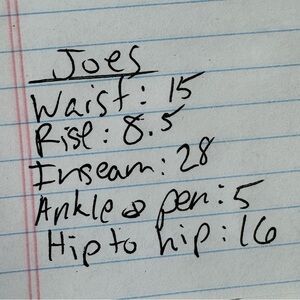 Joes
Waist: 15
Rise: 8.5
Inseam: 28
Ankle o pen: 5
Hip to hip: 16